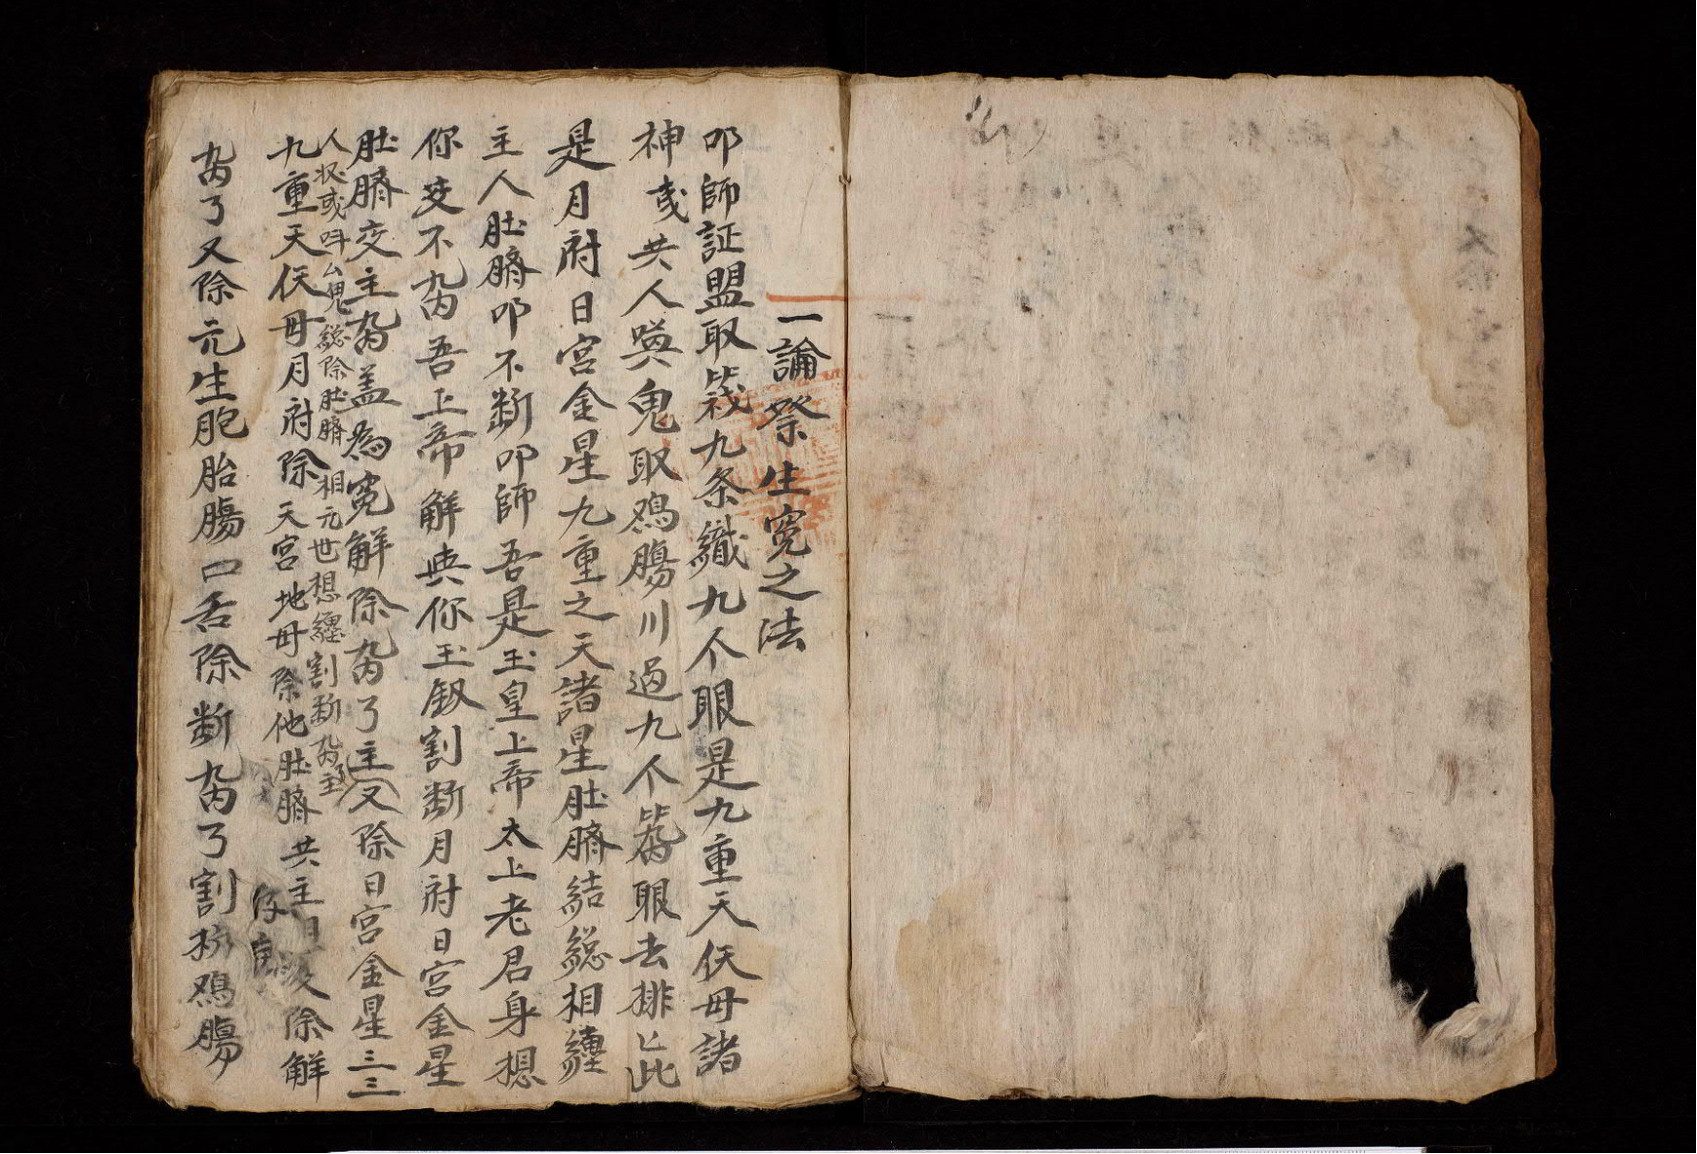 一論祭生冤之法
叩師証盟取筏九条織九个眼是九重天仸毋諸
神或共人喚鬼取鴉腸川過九个眼去排匕此
是月府日宮金星九重之天諸星肚臍結総相纏
主人肚臍叩不断叩師吾是玉皇上帝太上老君身想
你交不吾上帝解典你玉釼割断月府日宮金星
肚臍交主盖為冤解除了主又除日宮金星三三
人奴或呌厶鬼総除肚臍相元世想纏割断了主
九重天仸毋月府除天宮地毋除他肚臍共主除解
了又除元生胞胎腸口舌除断了割鴉腸